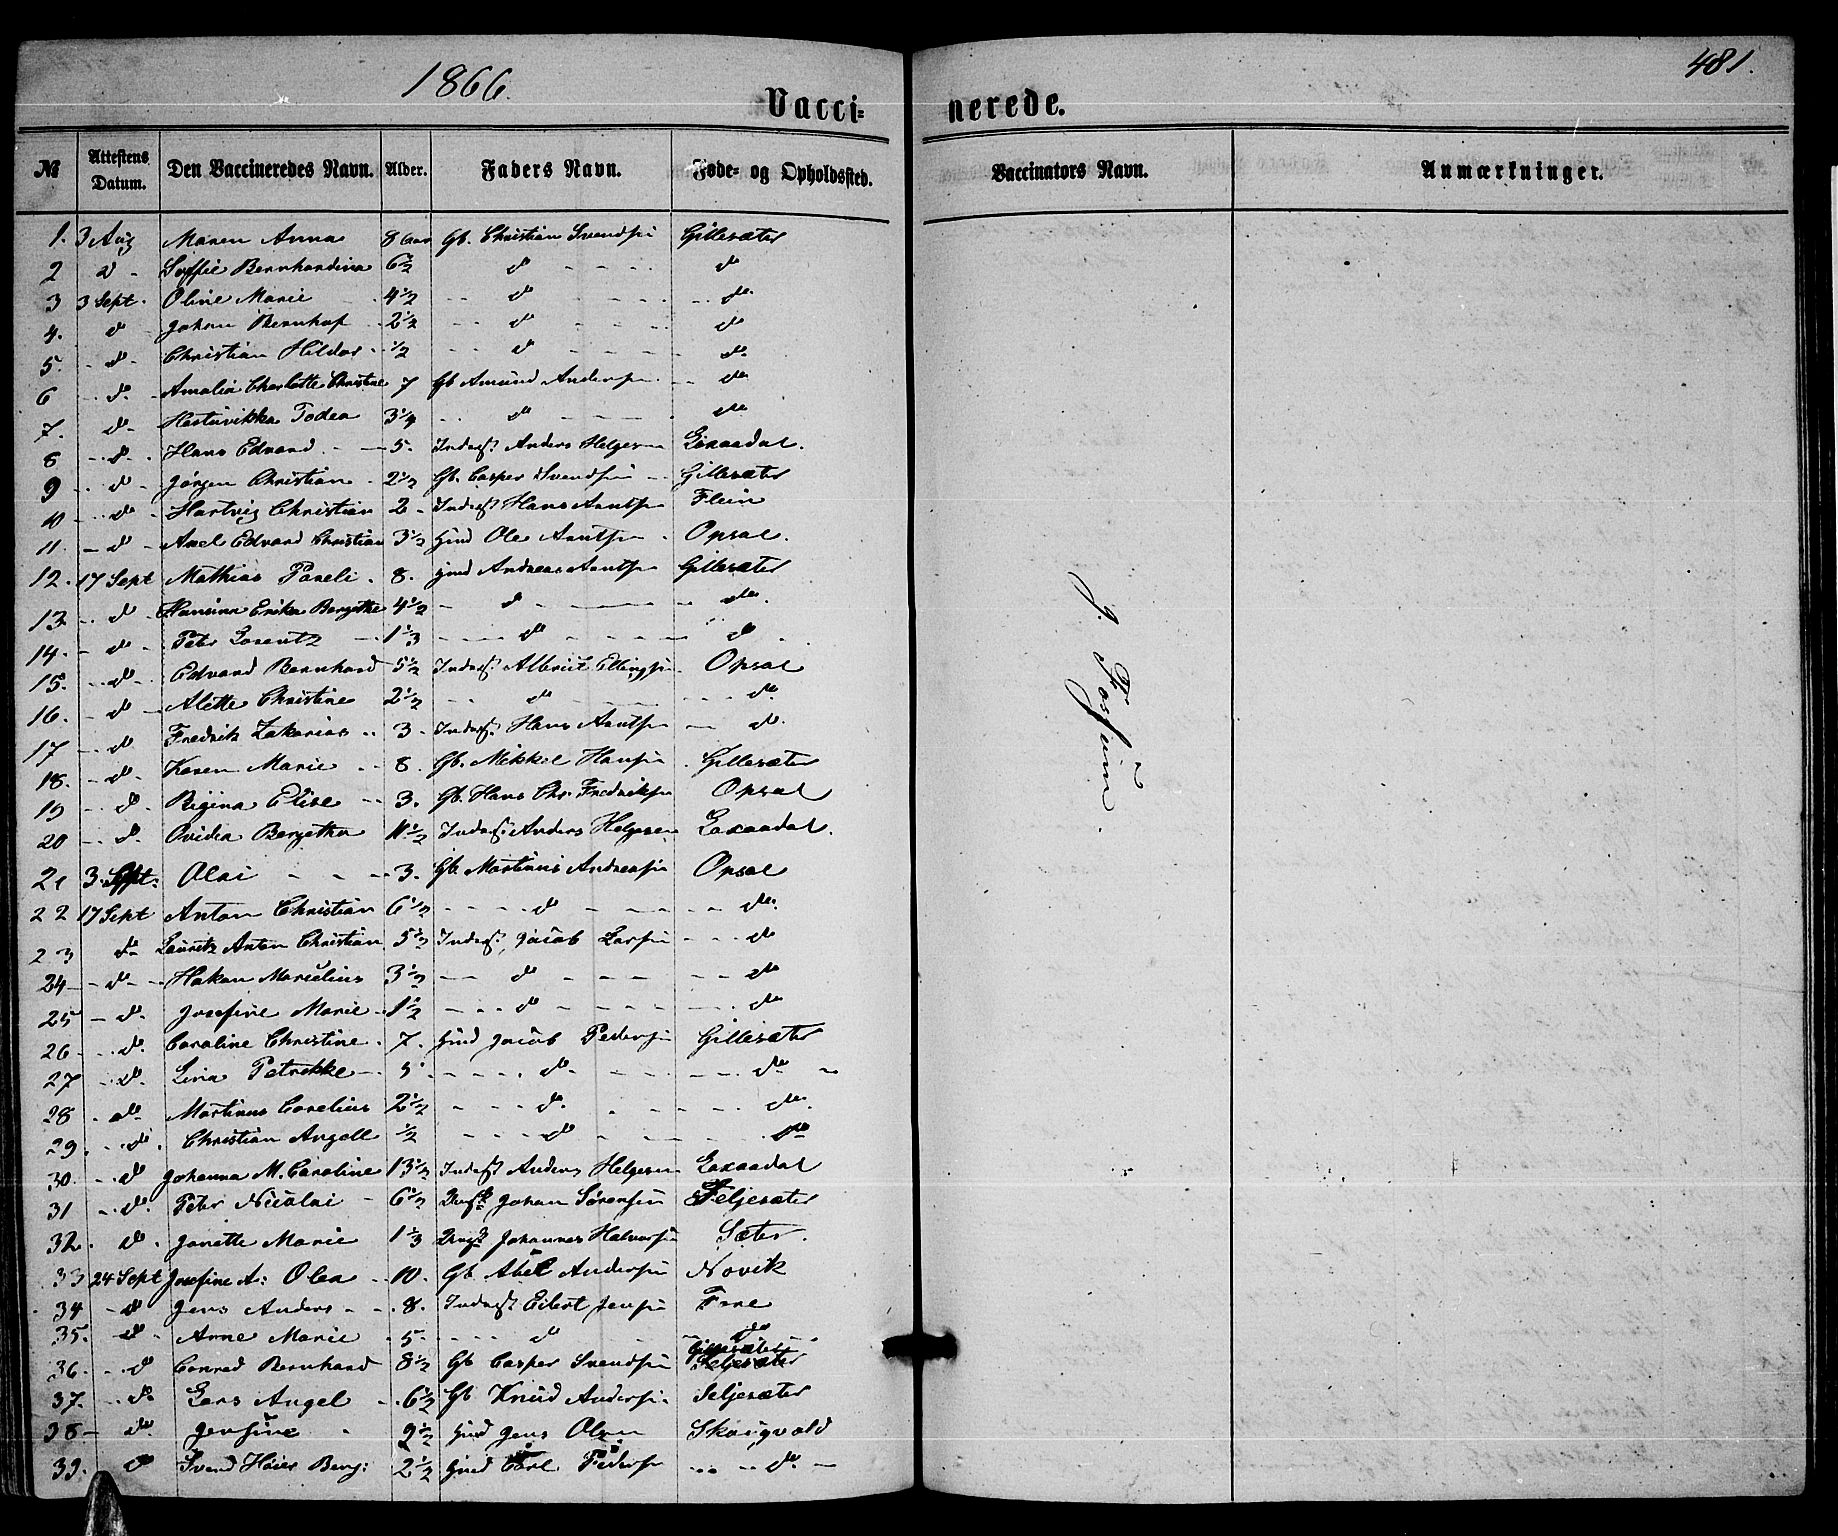 1866.
481.
Vacci- nerede.
№ Attestens Datum. Den Vaccineredes Navn. Alder. Faders Navn. Føde- og Opholdssted. Vaccinators Navn. Anmærkninger.
1. 3 Aug Maren Anna 8 Aar Gb. Christian Svendsen Gillesæter
2 d - Soffie Bernhardine 6½ do do
3 3 Sept. Oline Marie 4½ do do.
4. do Johan Bernhof 2½ do do
5. do Christian Hildor ½ do do
6 do Amalia Charlotte Christine 7 Gb Amund Andersen do
7. do Todea 3¼ do do
8 do Hans Edvard 5. Inderst Anders Helgesen Laxaadal.
9 do Jørgen Christian 2½ Gb. Casper Svendsen Gillesæter
10 do Hartvig Christian 2 Inderst Hans Arntsen Flein
11. do Axel Edvard Christian 3½ Gmd Ole Arntsen Opsal.
12. 17 Sept Mathias Pareli. 8. Gmd Andreas Arntsen Gillesæter
13 do Hansina Erika Bergithe 4½ do do.
14. do Peter Lorentz 1⅓ do do
15. do Edvard Bernhard 5½ Inderst. Albrict Ellingsen Opsal
16. do Alette Christine 2½ do do.
17 do Fredrik Zakarias 3. Inderst. Hans Arntsen do.
18. do Karen Marie 8. Gb. Mikkel Hansen Gillesæter
19 do Regina Elise 3. Gb. Hans Chr. Fredriksen Opsal
20 do Ovidia Bergetha 11½ Inderst. Anders Helgesen Laxaadal.
21 3. Sept: Olai 3. Gb. Martinus Andreasen Opsal
22 17 Sept Anton Christian 6½ do do.
23 do Lauritz Anton Christian 5½ Inderst, Jacob Larsen do
24 do Hakon Marselius 3½ do do
25 do Josefine Marie 1½ do do
26 do. Caroline Christine. 7. Gmd Jacob Pedersen Gillesæter
27 do. Lina Petrikke 5 do do
28 do Martinus Corelius 2½ do. do.
29. do. Christian Angell ½ do do
30. do Johanna M. Caroline 13½ Inderst Anders Helgesen Laxaadal
31 do. Peter Nicolai 6½ Johan Sørensen Seljesæter
32. do. Janette Marie 1⅓ Johannes Halvorsen Sæter.
33 24 Sept Josefine A: Olea 10. Gb Abel Andersen Novik
34 do Jens Anders 8. Inderst Eilert Jensen Fore
35. do Anne Marie 5. do do
36. do Conrad Bernhard 8½ Gb Casper Svendsen Gillesæter Seljesæter
37. do Lars Angel 6½ Gb Knud Andersen Seljesæter
38 do Jensine 2½ Gmd Jens Olsen Skaugvold
39. do Svend Höier Berg: 2½ Gmd Carl Pedersen do.
J. Fosseim.